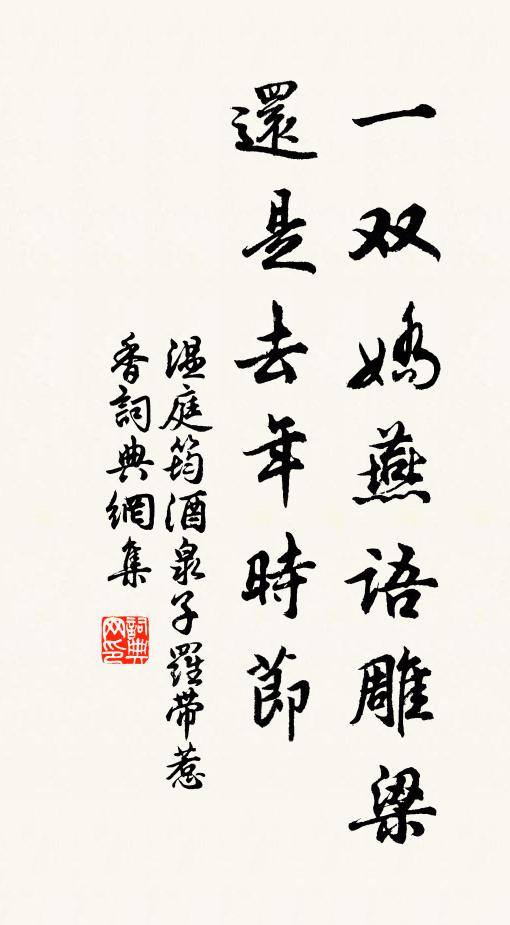 一双嬌燕語雕梁
還是去年時節
温庭筠酒泉子羅带惹
香詞典網集
詞典网印